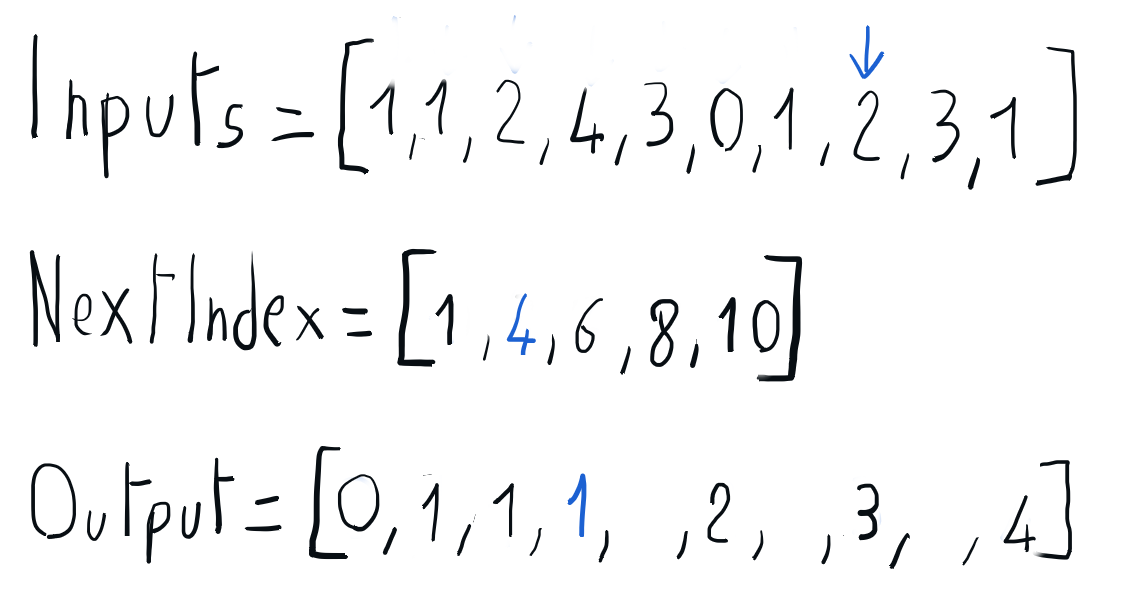 Inputs = [1,1,2,4,3,0,1,2,3,1]
NextIndex = [1,4,6,8,10]
Output = [0,1,1,1, ,2, ,3, ,4]